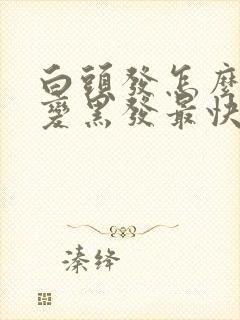 白頭發怎麼
變黑發最快
溱绛